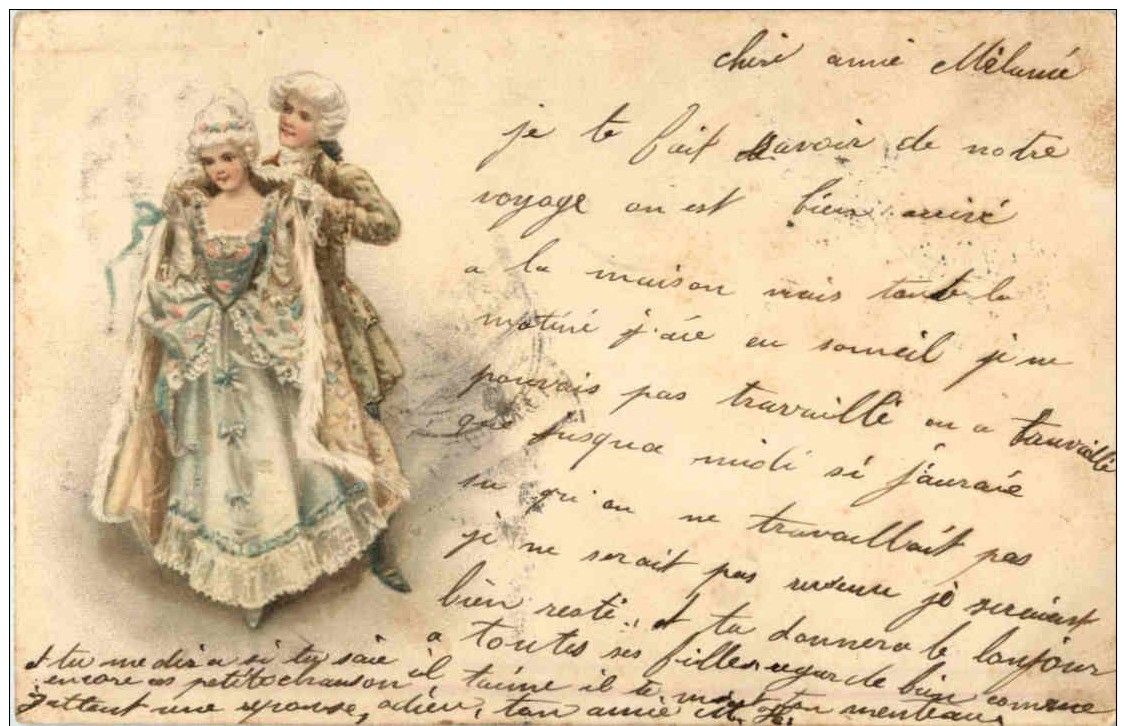 chère amie Mélanie
je te fait savoir de notre
voyage on est bien arrivé
a la maison mais toute la
matiné j'aie eu someil je ne
pouvais pas travaillé on a travaillé
que jusqua midi si j'auraie
su qu'on ne travaillait pas
je ne serait pas revenu je seraient
bien resté, et tu donnera le bonjour
a toutes ses filles regarde bien comme
il t'aime il te met ton menteau
et tu me dira si tu saie
encore ces petite chanson
j'attent une reponse, adieu, ton amie M.